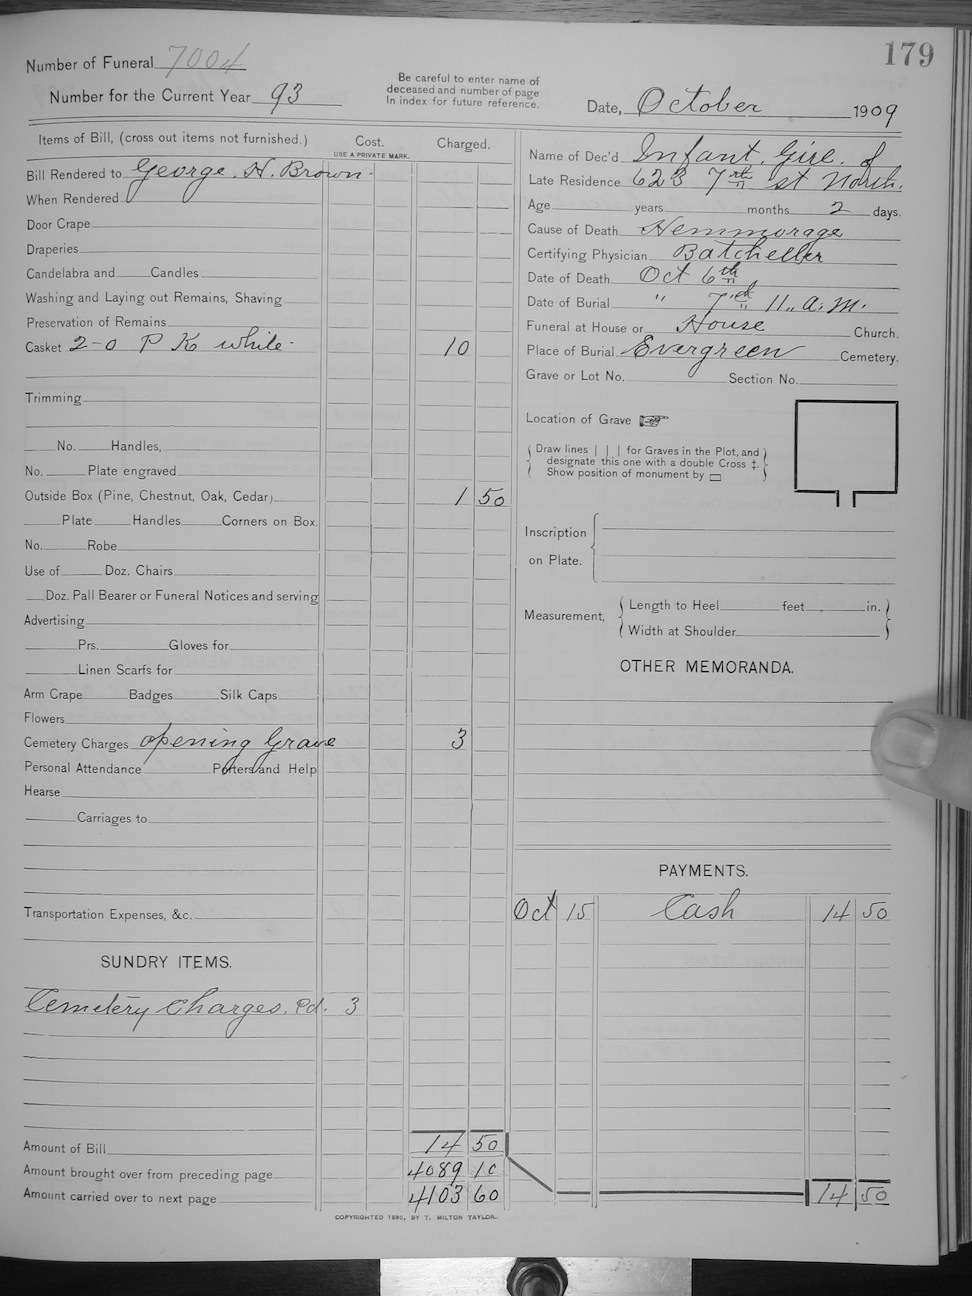 179
Number of Funeral 7004
Number for the Current Year 93
Be careful to enter name of
deceased and number of page
In index for future reference.
Date, October 1909
Items of Bill, (cross out items not furnished.)
Cost.
USE A PRIVATE MARK.
Charged.
Bill Rendered to George. H. Brown.
When Rendered
Door Crape
Draperies
Candelabra and Candles
Washing and Laying out Remains, Shaving
Preservation of Remains
Casket 2-0 P K white 10
Trimming
No. Handles,
No. Plate engraved
Outside Box (Pine, Chestnut, Oak, Cedar) 1 50
Plate Handles Corners on Box.
No. Robe
Use of Doz. Chairs
Doz. Pall Bearer or Funeral Notices and serving
Advertising
Prs. Gloves for
Linen Scarfs for
Arm Crape Badges Silk Caps
Flowers
Cemetery Charges opening Grave 3
Personal Attendance Porters and Help
Hearse
Carriages to
Transportation Expenses, &c.
SUNDRY ITEMS.
Cemetery Charges. Pd. 3
Amount of Bill 14 50
Amount brought over from preceding page 4089 10
Amount carried over to next page 4103 60
Name of Dec'd Infant. Girl. of
Late Residence 623 7th st North.
Age years months 2 days.
Cause of Death Hemmorage
Certifying Physician Batcheller
Date of Death Oct 6th
Date of Burial " 7th 11,, a.m.
Funeral at House or House Church.
Place of Burial Evergreen Cemetery.
Grave or Lot No. Section No.
Location of Grave
Draw lines | | | for Graves in the Plot, and
designate this one with a double Cross ‡.
Show position of monument by ▭
Inscription
on Plate.
Measurement, Length to Heel feet in.
Width at Shoulder
OTHER MEMORANDA.
PAYMENTS.
Oct 15 Cash 14 50
14 50
COPYRIGHTED 1880, BY T. MILTON TAYLOR.